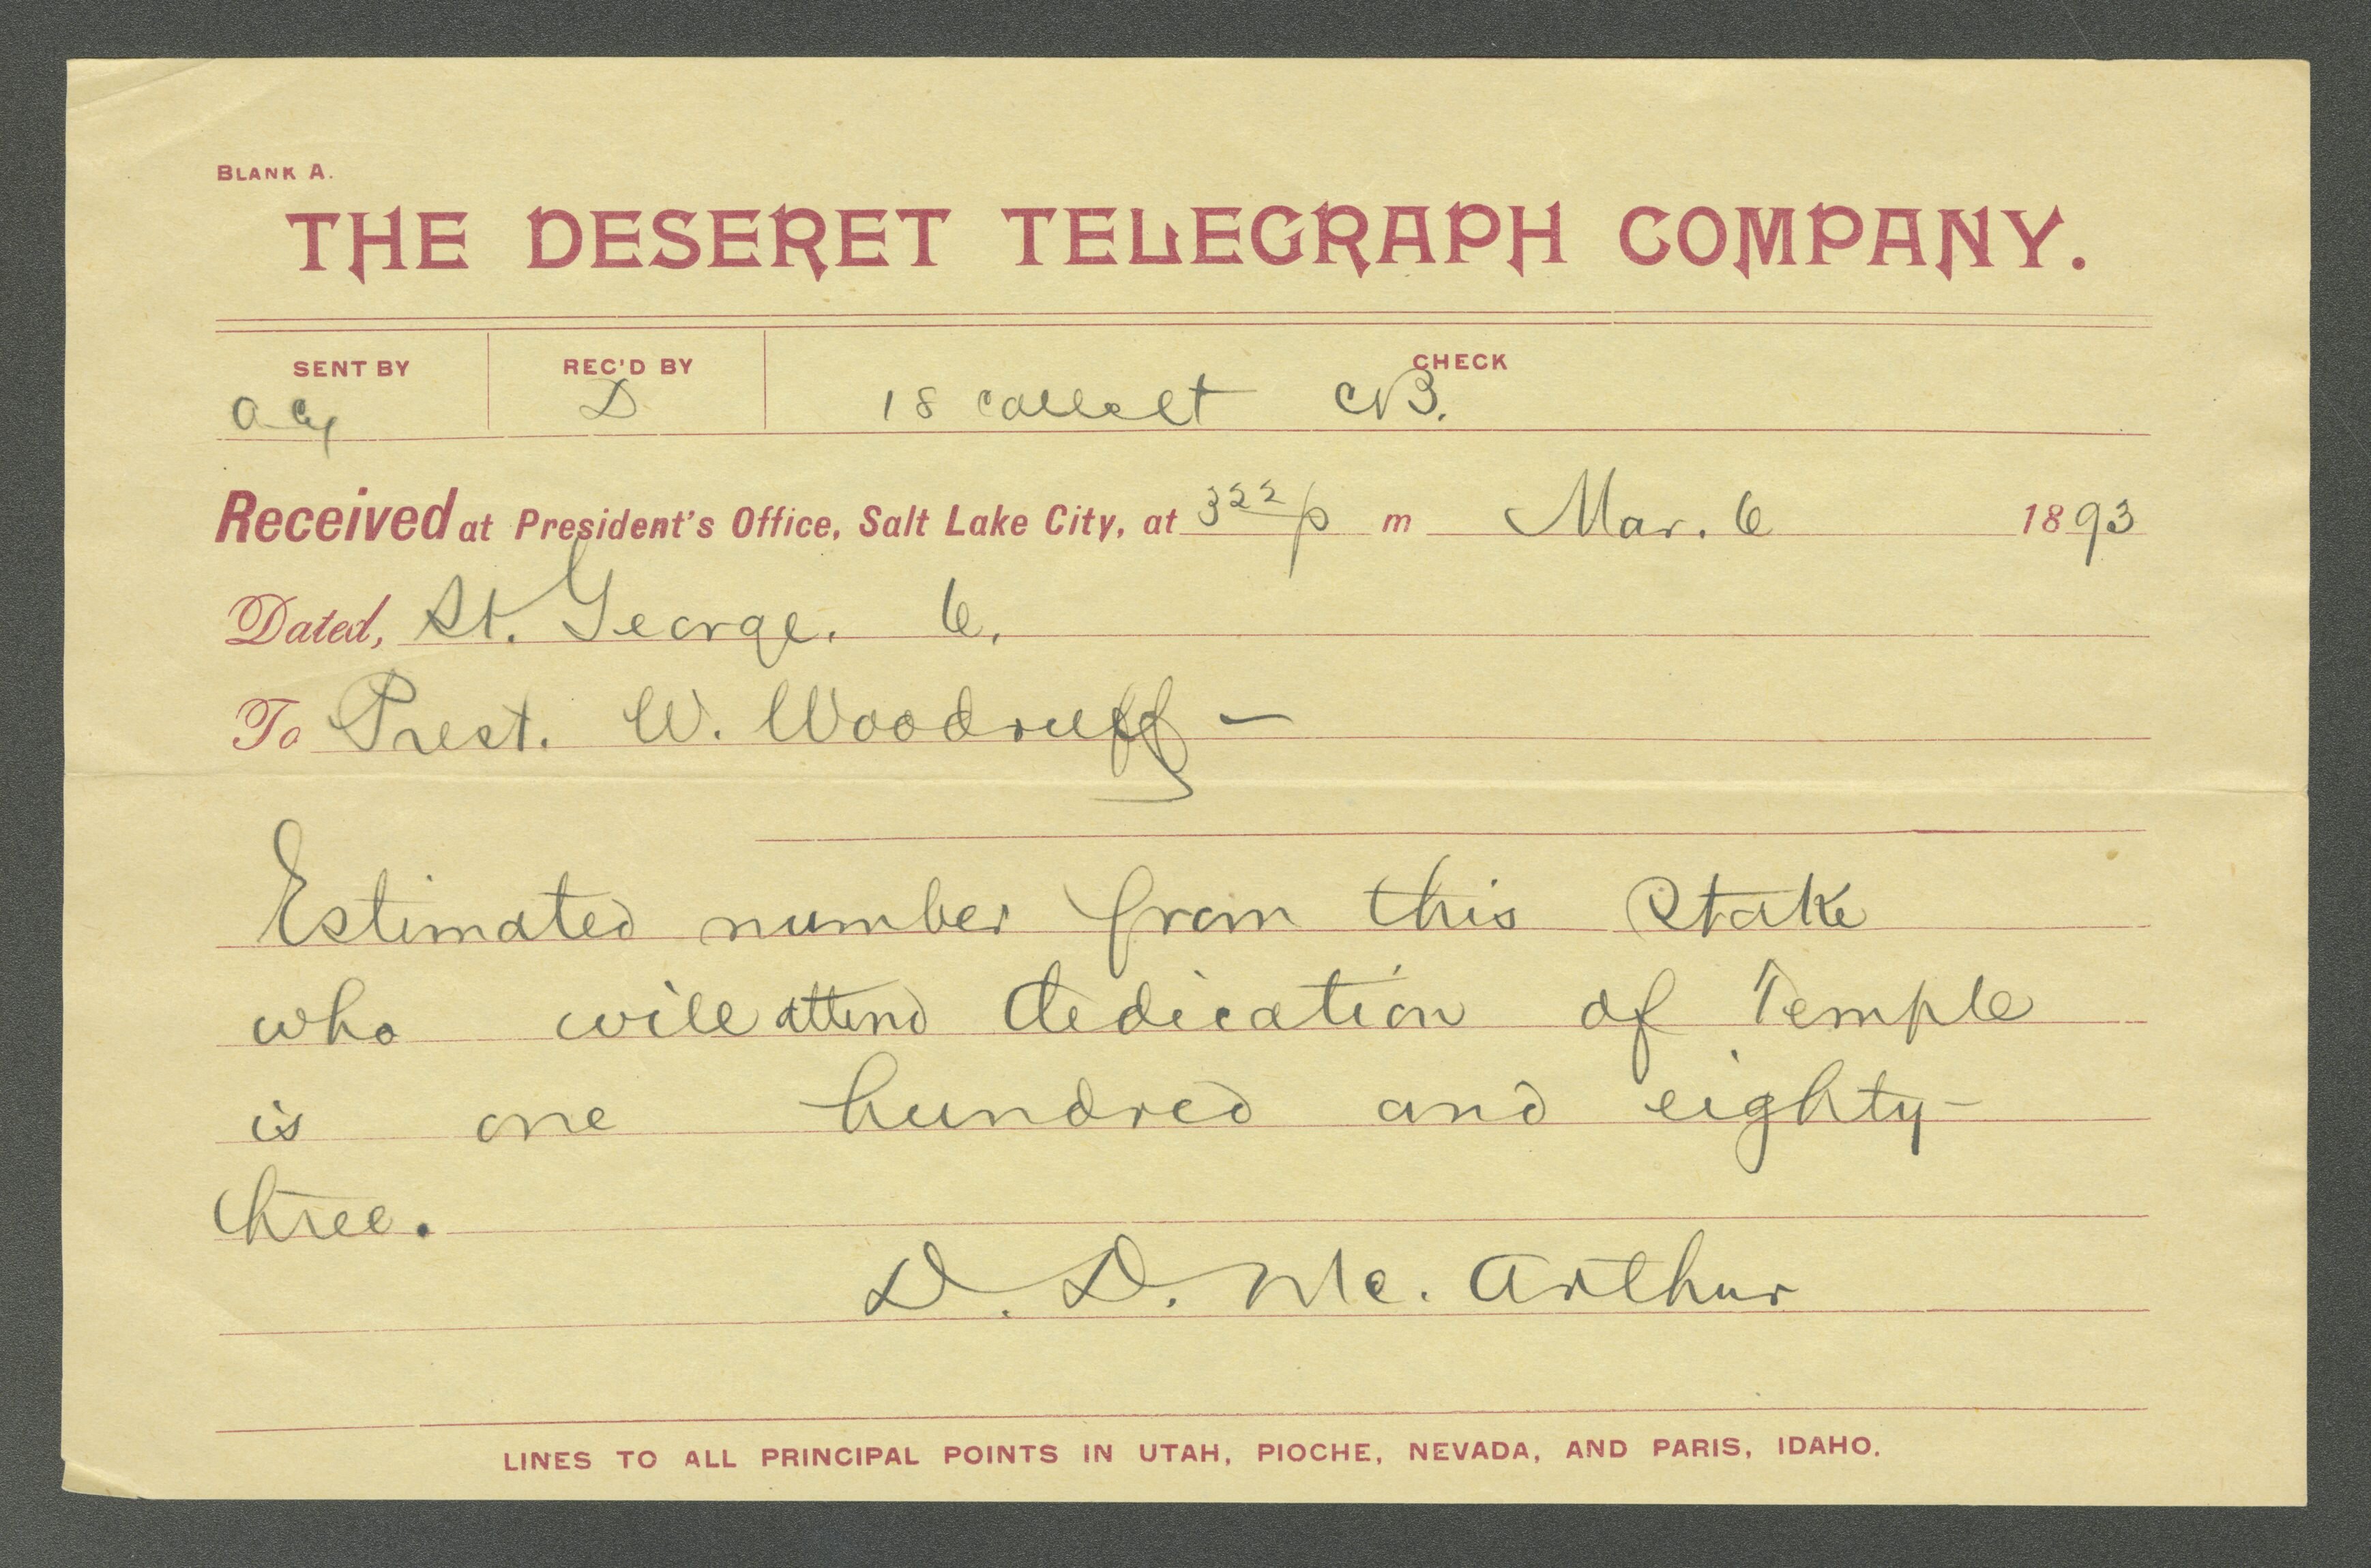 BLANK A.
THE DESERET TELEGRAPH COMPANY.
SENT BY REC'D BY CHECK
D 18 collect
Received at President's Office, Salt Lake City, at 3 22 p m Mar. 6 1893
Dated, St. George. 6.
To Prest. W. Woodruff —
Estimated number from this Stake
who will attend dedication of Temple
is one hundred and eighty-
three.
D. D. Mc. Arthur
LINES TO ALL PRINCIPAL POINTS IN UTAH, PIOCHE, NEVADA, AND PARIS, IDAHO.